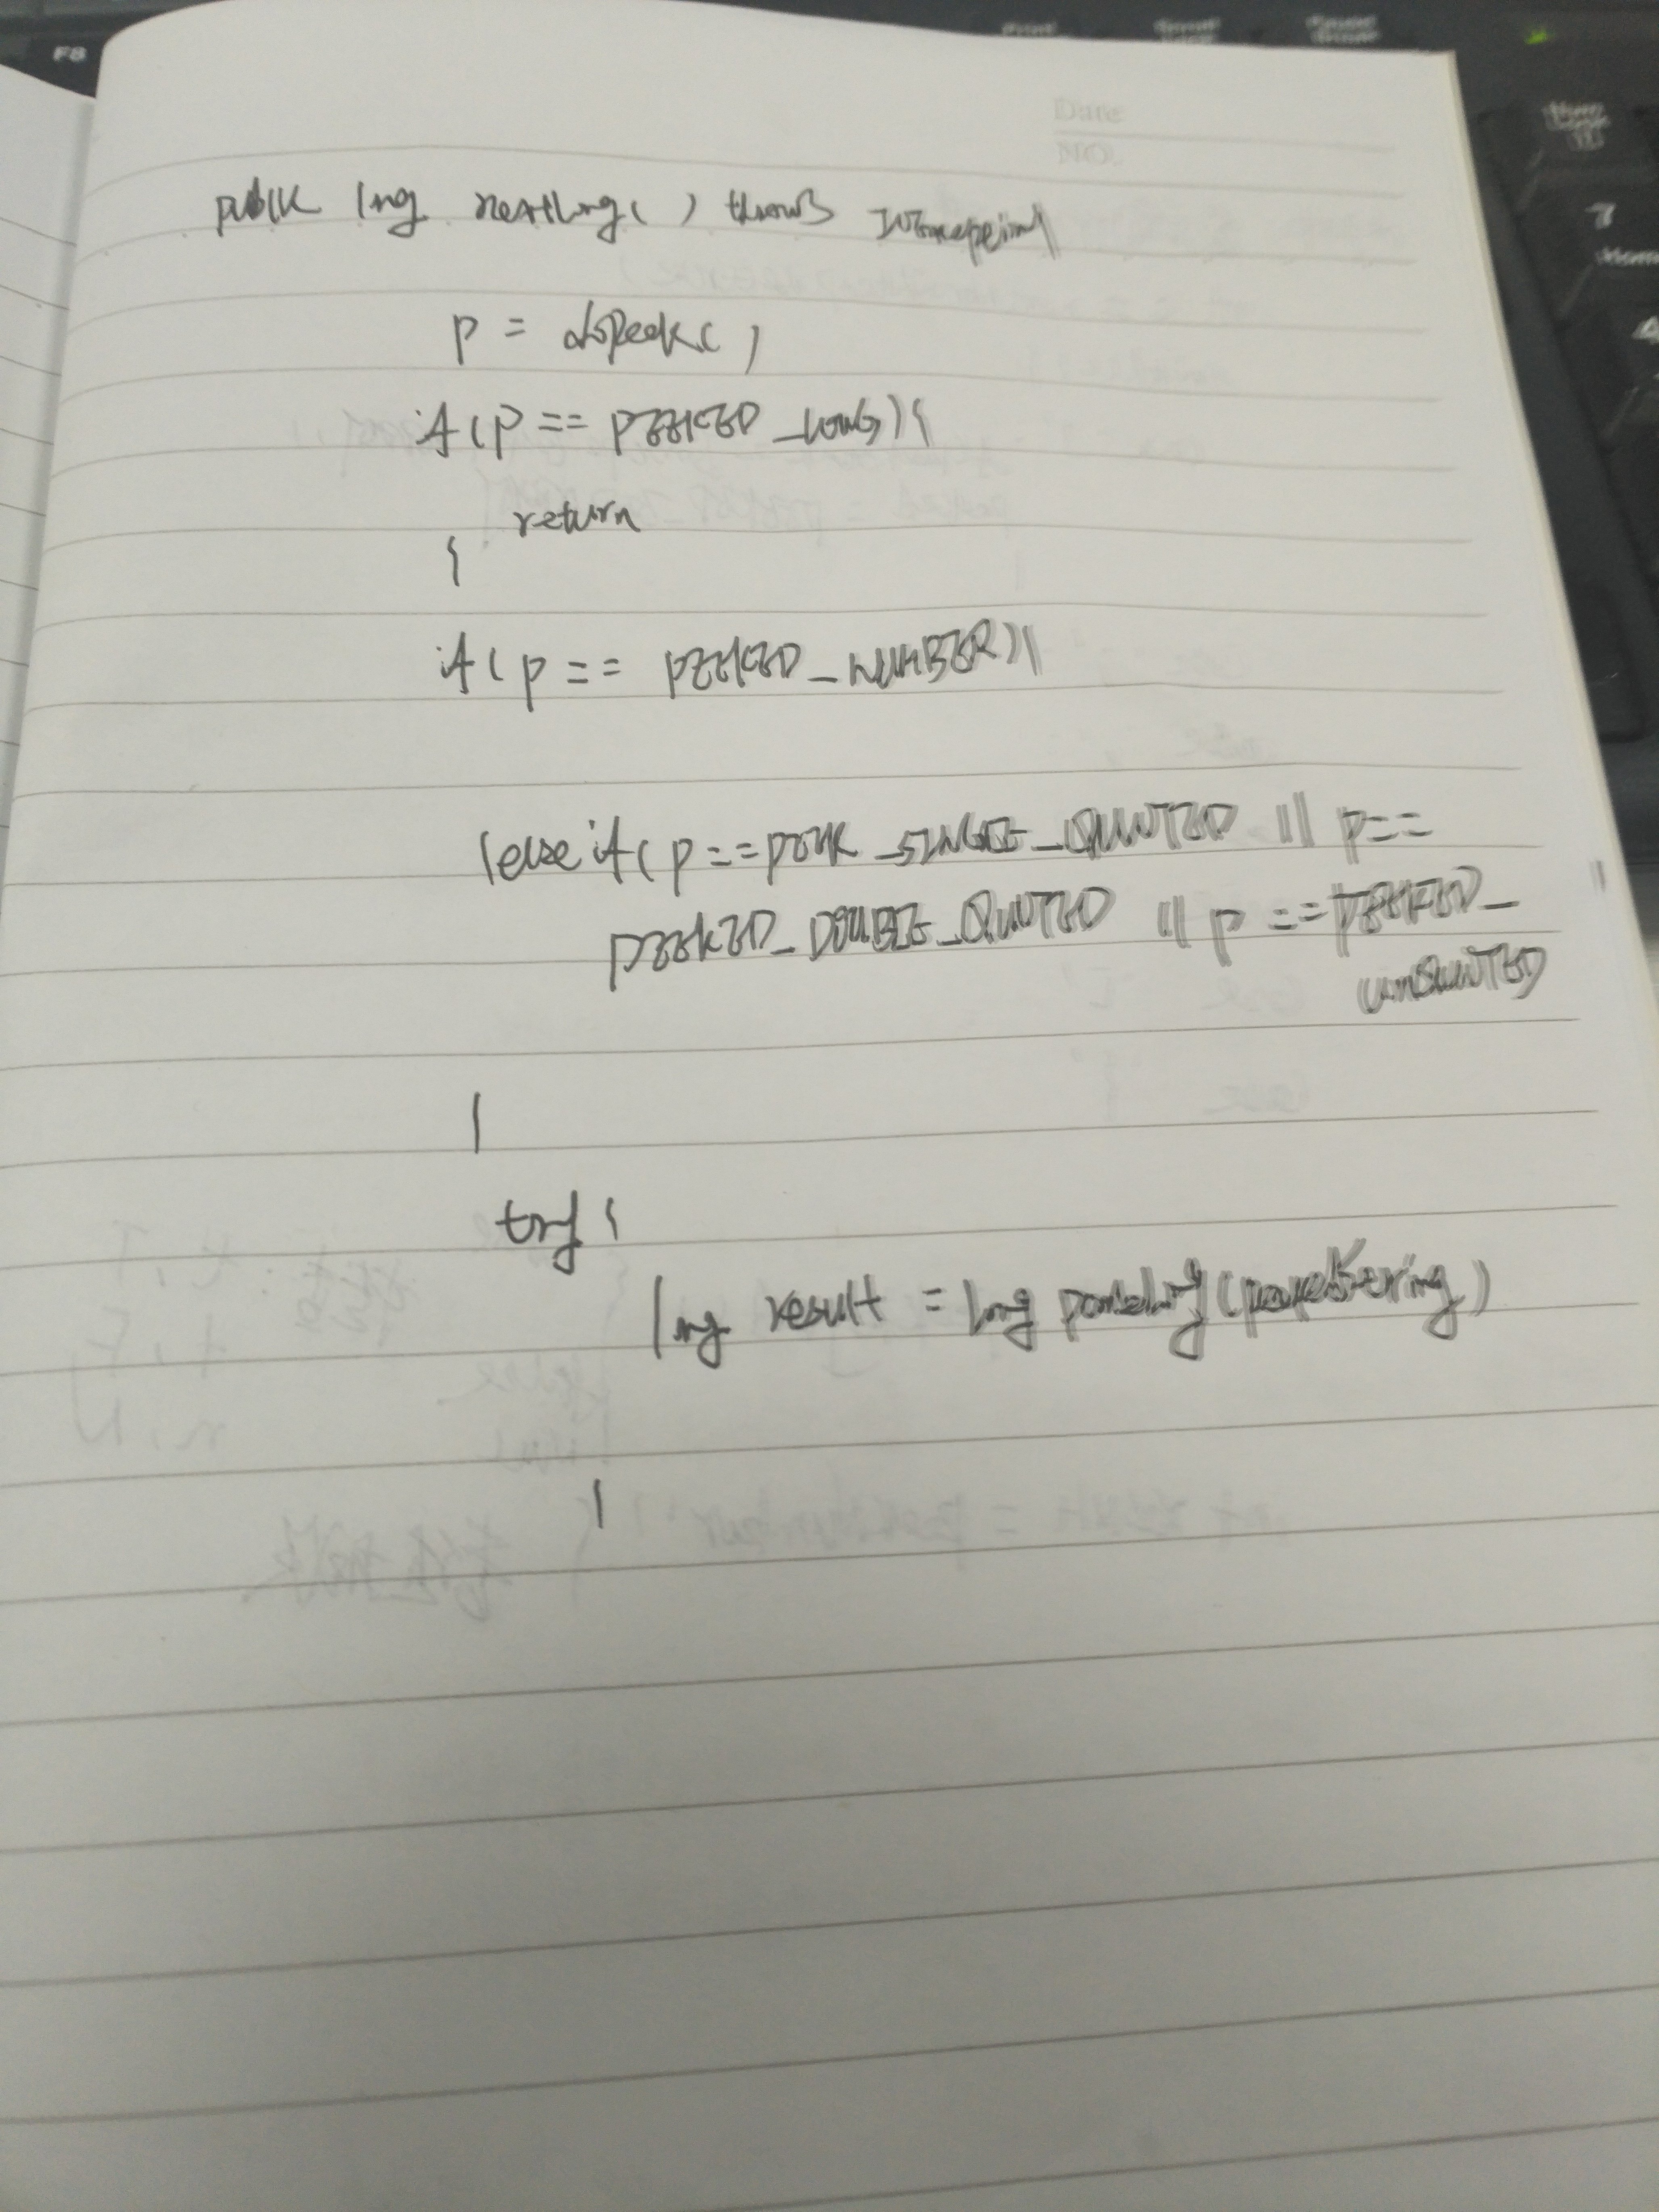 Date
NO.
public long nextLong() throws IOException{
p = doPeek()
if(p == PEEKED_LONG){
return
}
if(p == PEEKED_NUMBER){
}else if(p==PEEK_SINGLE_QUOTED || p==
PEEKED_DOUBLE_QUOTED || p ==PEEKED_
UNQUOTED
}
try{
long result = long parseLong(peekedString)
}
F8
7
Home
4